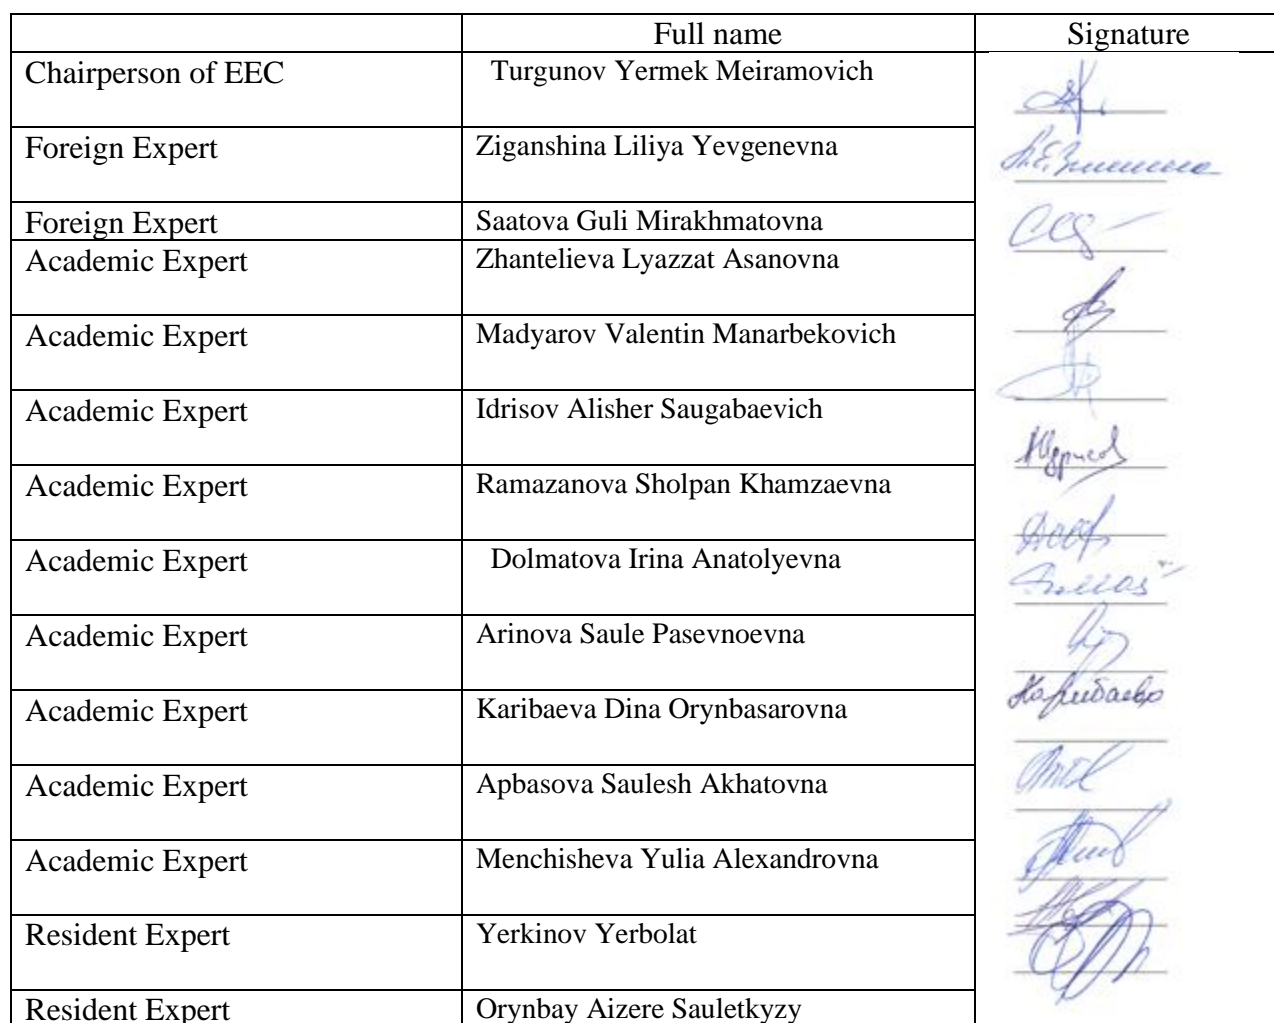 Full name Signature
Chairperson of EEC Turgunov Yermek Meiramovich
Foreign Expert Ziganshina Liliya Yevgenevna
Foreign Expert Saatova Guli Mirakhmatovna
Academic Expert Zhantelieva Lyazzat Asanovna
Academic Expert Madyarov Valentin Manarbekovich
Academic Expert Idrisov Alisher Saugabaevich
Academic Expert Ramazanova Sholpan Khamzaevna
Academic Expert Dolmatova Irina Anatolyevna
Academic Expert Arinova Saule Pasevnoevna
Academic Expert Karibaeva Dina Orynbasarovna
Academic Expert Apbasova Saulesh Akhatovna
Academic Expert Menchisheva Yulia Alexandrovna
Resident Expert Yerkinov Yerbolat
Resident Expert Orynbay Aizere Sauletkyzy